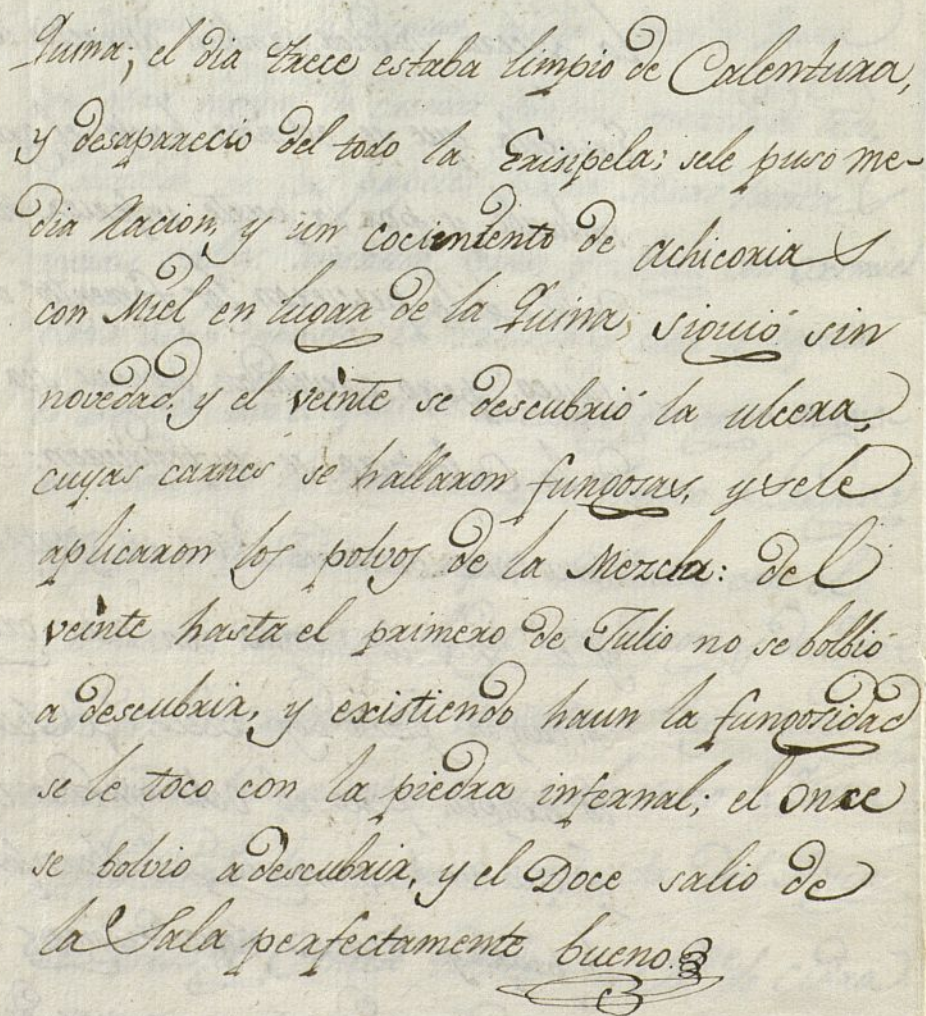 Quina; el dia trece estaba limpio de Calentura,
y desaparecio del todo la Erisipela; sele puso me-
dia Racion, y un cocimiento de achicorias
con Miel en lugar de la Quina, siguió sin
novedad, y el veinte se descubrió la ulcera,
cuyas carnes se hallaron fungosas, y sele
aplicaron los polvos de la Mezcla: del
veinte hasta el primero de Julio no se bolbió
a descubrir, y existiendo haun la fungosidad
se le toco con la piedra infernal; el once
se bolvio a descubrir, y el Doce salio de
la Sala perfectamente bueno.